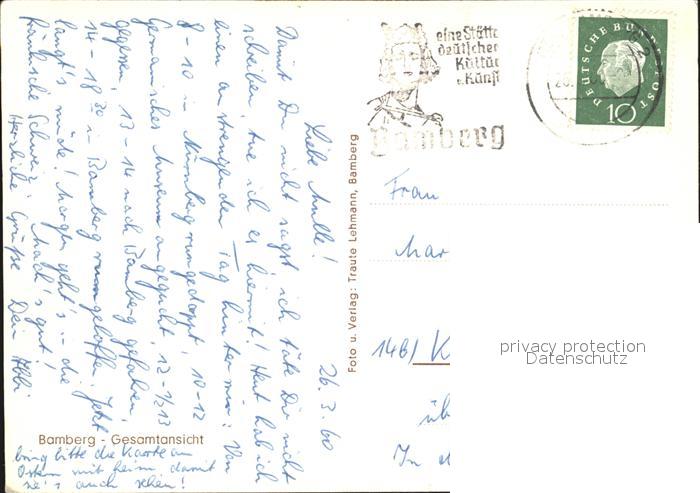 26.3.60
Liebe Mulle!
Damit Du nicht sagst ich täte Dir nicht
schreiben, tue ich es hiermit! Heut hab ich
einen anstrengenden Tag hinter mir: Von
8 - 10 in Nürnberg rumgedoppt, 10-12
Germanisches Museum angeguckt, 12-½13
gegessen, 13-14 nach Bamberg gefahren,
14 - 18³⁰ in Bamberg rumgeloffe. Jetzt
langt's mide! Morgen geht's in die
Fränkische Schweiz. Mach's gut!
Herzliche Grüße Dein
Bamberg - Gesamtansicht
bring bitte die Karte an
Ostern mit heim damit
se's auch sehen!
Foto u. Verlag: Traute Lehmann, Bamberg
eine Stätte
deutscher
Kultur
u. Kunst
Bamberg
DEUTSCHE BUNDESPOST
10
Frau
Mar
14b) K
üb
In d
privacy protection
Datenschutz